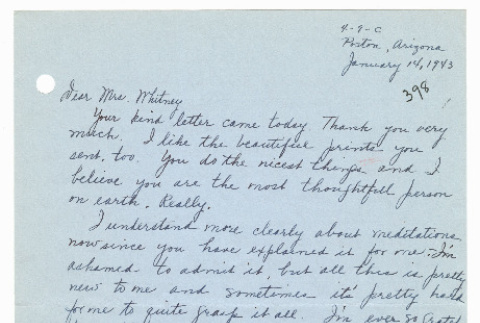 4-9-C
Poston, Arizona
January 14, 1943
398
Dear Mrs. Whitney
Your kind letter came today Thank you very
much. I like the beautiful prints you
sent, too. You do the nicest things and I
believe you are the most thoughtfull person
on earth. Really.
I understand more clearly about meditations
now since you have explained it for me. I'm
ashamed to admit it, but all this is pretty
new to me and sometimes it's pretty hard
for me to quite grasp it all. I'm ever so